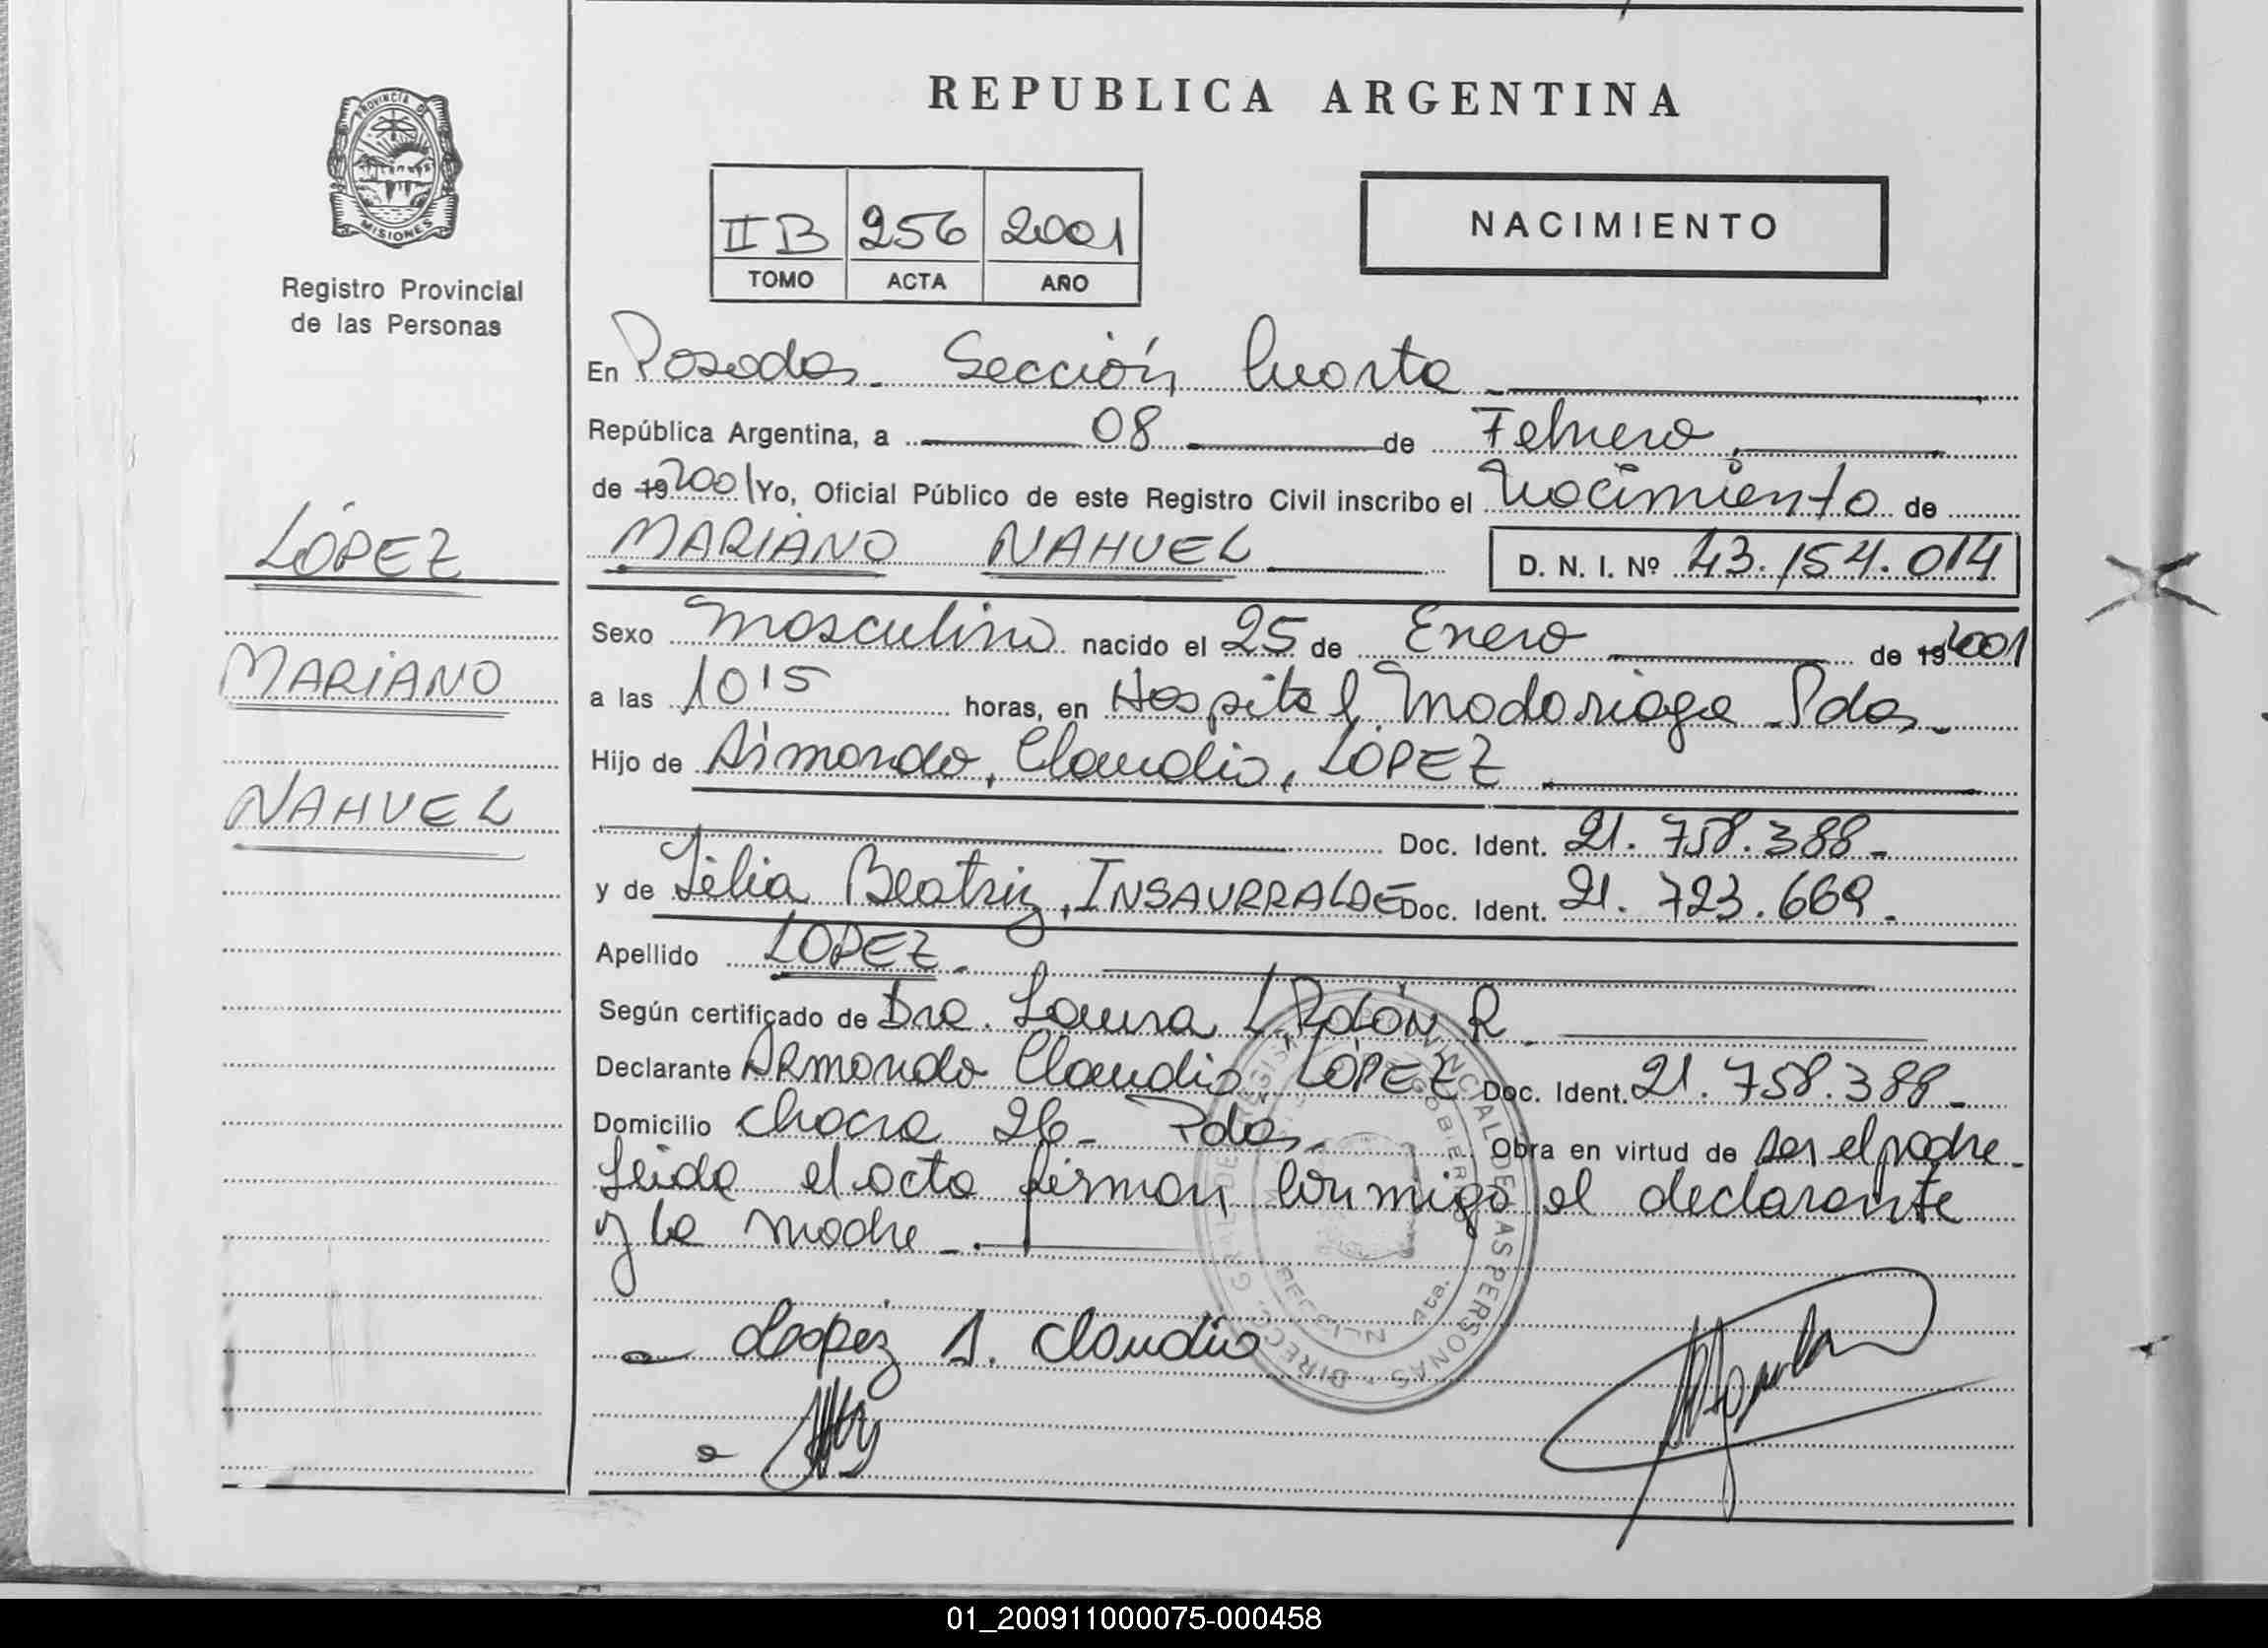 PROVINCIA DE
MISIONES
Registro Provincial
de las Personas
LÓPEZ
MARIANO
NAHUEL
REPUBLICA ARGENTINA
II B 256 2001
TOMO ACTA AÑO
NACIMIENTO
En Posadas. Sección Cuarta
República Argentina, a 08 de Febrero
de 19 2001 Yo, Oficial Público de este Registro Civil inscribo el Nacimiento de
MARIANO NAHUEL D. N. I. Nº 43.154.014
Sexo Masculino nacido el 25 de Enero de 19 2001
a las 10 15 horas, en Hospital Madariaga Pdas.
Hijo de Armando, Claudio, LÓPEZ
Doc. Ident. 21.758.388
y de Lélia Beatriz, INSAURRALDE Doc. Ident. 21.723.669.
Apellido LOPEZ.
Según certificado de Dra. Laura R.
Declarante Armando Claudio LÓPEZ Doc. Ident. 21.758.388
Domicilio Chacra 26- Pdas. Obra en virtud de ser el padre.
Leida el acta firman conmigo el declarante
y la madre.
DIRECC. GRAL. DEL REGISTRO PROVINCIAL DE LAS PERSONAS
SECCION 4ta.
Lopez A. Claudio
01_200911000075-000458